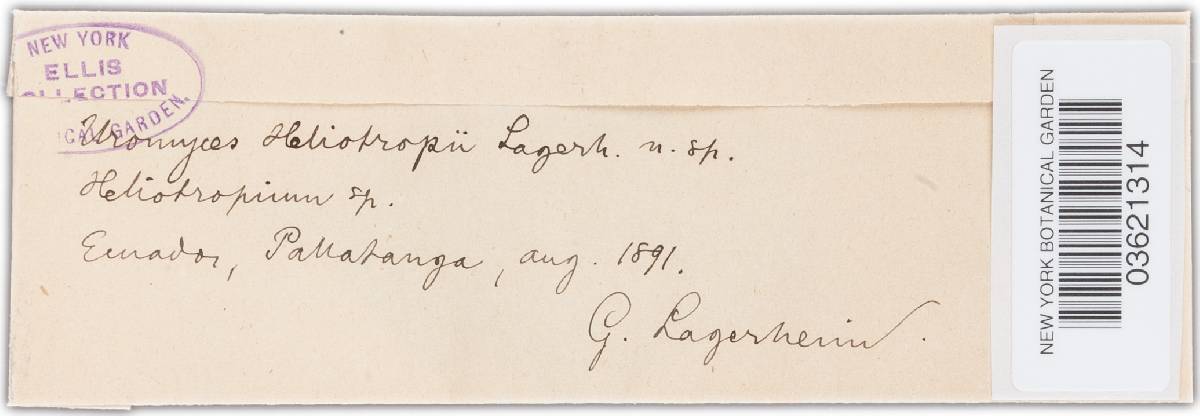 NEW YORK
ELLIS
COLLECTION
ICAL GARDEN.
Uromyces Heliotropii Lagerh. n. sp.
Heliotropium sp.
Ecuador, Pallatanga, aug. 1891.
G. Lagerheim.
NEW YORK BOTANICAL GARDEN
03621314